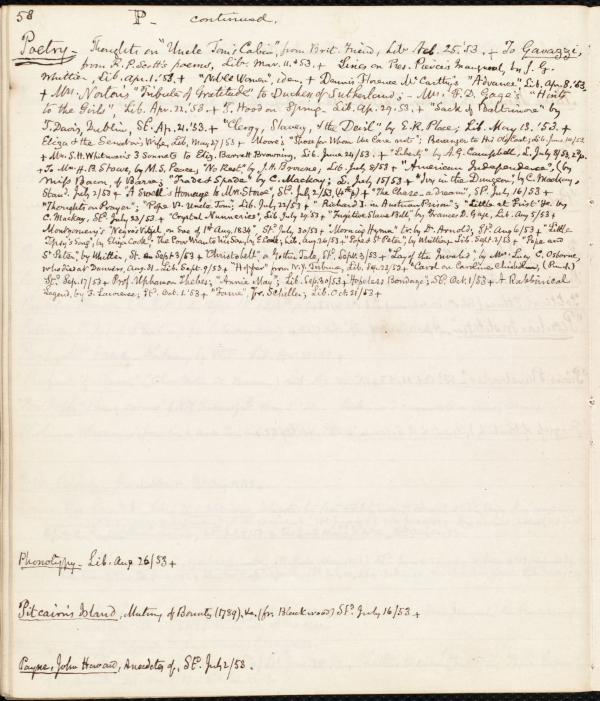 58 P- continued.
Poetry - Thoughts on "Uncle Tom's Cabin", from Brit. Friend, Lib. Feb. 25. '53. + To Gavazzi,
from R. P. Scott's poems, Lib. Mar. 11. '53. + Lines on Pres. Pierce's Inaugural, by J. G.
Whittier, Lib. Apr. 1. '53. + "Noble Women", idem, + Dennis Florence McCarthy's "Advance", Lib. Apr. 8. '53.
+ Mrs. Norton's "Tribute of Gratitude" to Duchess of Sutherland; - Mrs. F. D. Gage's "Hints
to the Girls", Lib. Apr. 22. '53. + T. Hood on Spring - Lib. Apr. 29. 53. + "Sack of Baltimore" by
T. Davis, Dublin, St. Ap. 21. '53. + "Clergy, Slavery, & the Devil" by E. R. Place; Lib. May 13. '53. +
Eliza & the Senator's Wife, Lib. May 27/53 + Moore's "Those for Whom We Care not"; Lib. June 10/53
+ Mrs. S. H. Whitman's 3 Sonnets to Eliz. Barrett Browning, Lib. June 24/53. + "Liberty" by A. G. Campbell, L. July 8/53, 2 p.
+ To Mrs. H. B. Stowe, by M. S. Peace, "No Rest", by J. H. Browne, Lib. July 8/53 + "American Independence", (by
Miss Bacon, of Barre; "Trade & Spade" by C. Mackay; L. July 15/53 + "Ivy in the Dungeon", by C. Mackay,
Stand. July 2/53 + A Small Homage to Mrs. Stowe", St. July 2/53, (4th p.) + "The Chase, a Dream", St. July 16/53 +
"Thoughts on Prayer"; "Pope vs. Uncle Tom", Lib. July 22/53 + "Richard I. in Austrian Prison"; "Little at First" &c. by
C. Mackay, St. July 23/53 + "Crystal Nunneries", Lib. July 29/53 + "Fugitive Slave Bill", by Frances D. Gage, Lib. Aug 5/53 +
Montgomery's "Negro's Vigil, on Eve of 1st Aug. 1834", St. July 30/53 + "Morning Hymn" tr. by Dr. Arnold, St. Aug 6/53 + "Little
Gipsy's Song", by Eliza Cook, "The Poor Man to His Son, by E. Cook; Lib. Aug 26/53, "Pope & St. Peter", by Whittier, Lib. Sept. 2/53 + "Pope and
St. Peter", by Whittier, St. Sept 3/53 + "Christobell" a Gothic Tale, St. Sept. 3/53 + "Lay of the Invalid", by Mrs. Lucy C. Osborne,
who died at Danvers, Aug. 31. Lib. Sept. 9/53 + "Hopper" from N.Y. Tribune, Lib. Sep. 22/53 + "Carol on Caroline Chisholm, (Punch)
St. Sep. 17/53 + Prof. Upham on Thebes; "Annie May"; Lib. Sep. 30/53 + Hopeless Bondage; St. Oct. 1/53 + A Rabbinical
Legend, by J. Laurence; St. Oct. 1. '53 + "Fame", fr. Schiller; Lib. Oct. 21/53 +
Phonotypy - Lib. Aug 26/53 +
Pitcairn's Island, Mutiny of Bounty (1789), &c. (fr. Blackwood) St. July 16/53 +
Payne, John Howard, Anecdotes of, St. July 2/53.